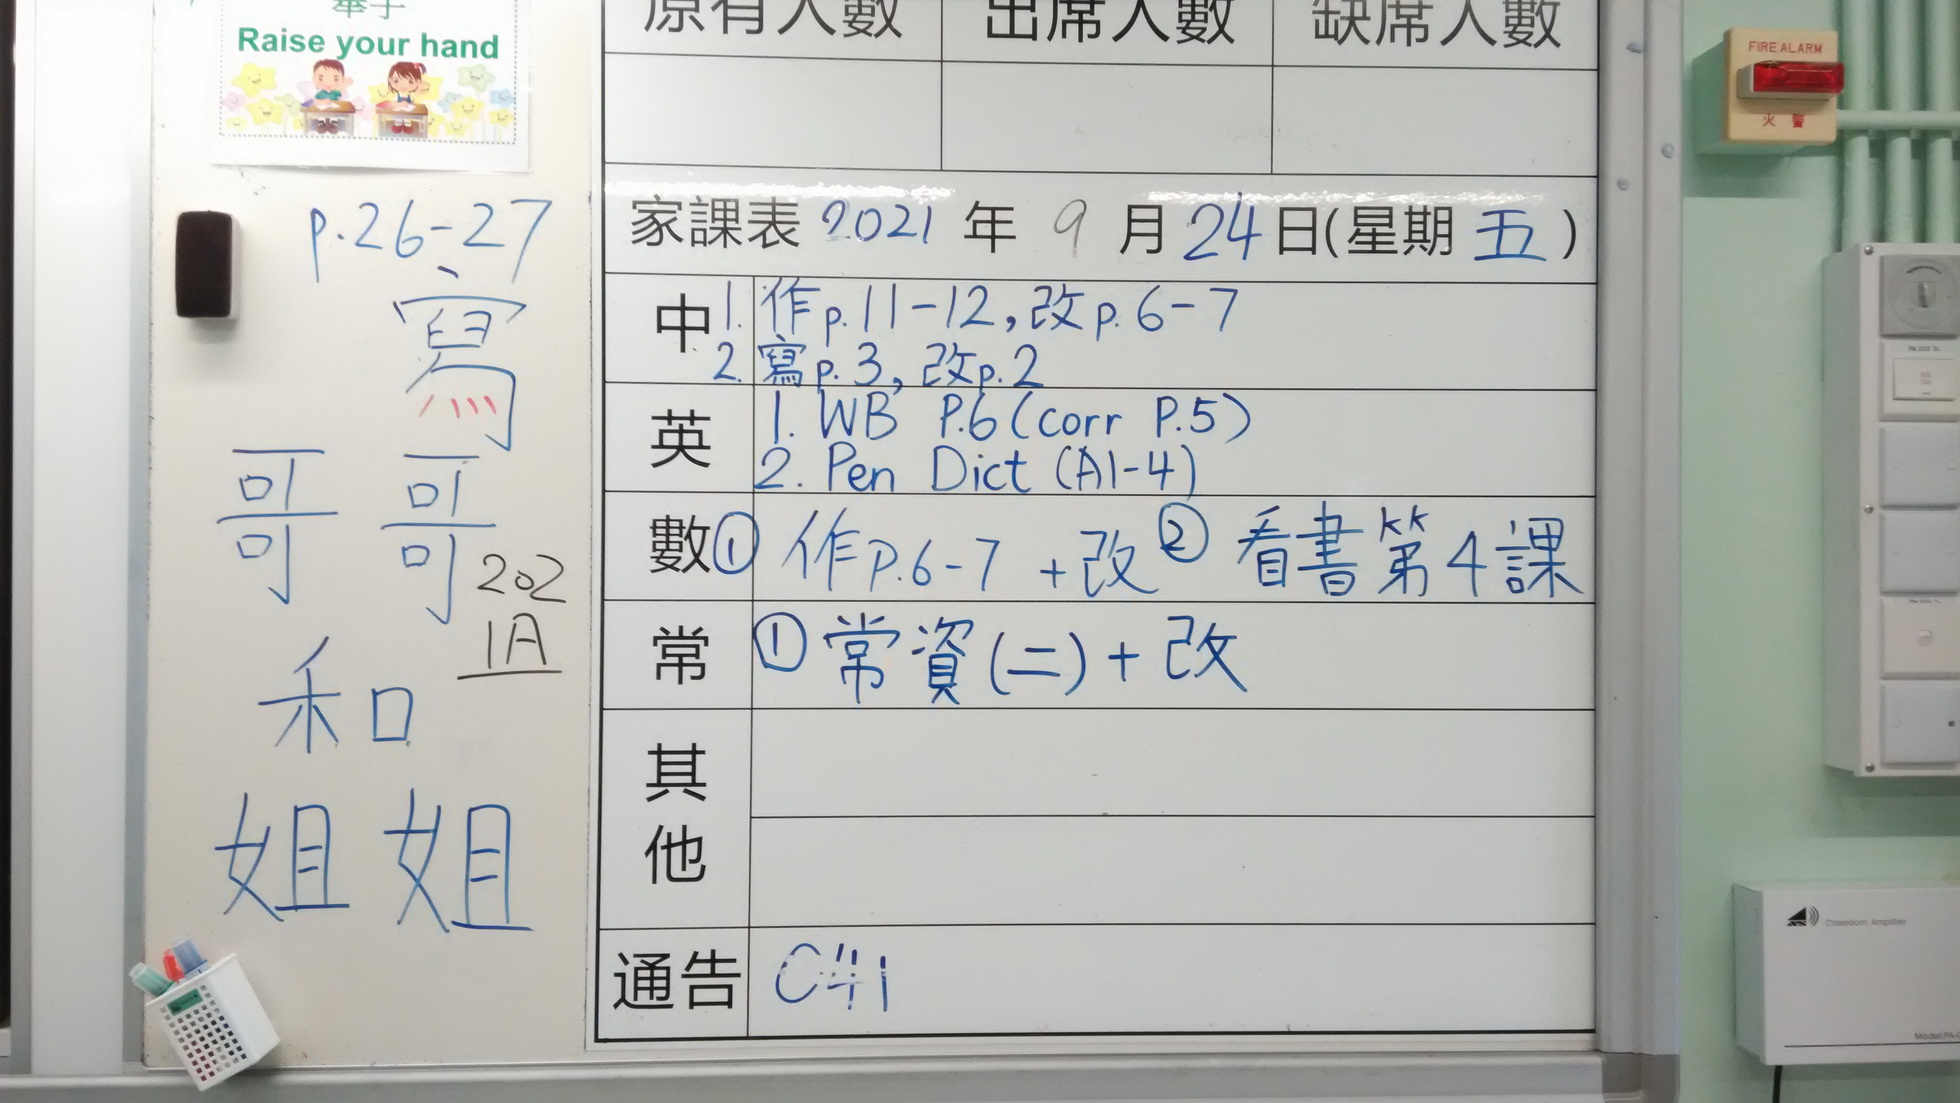 舉手
Raise your hand
原有人數 出席人數 缺席人數
家課表 2021 年 9 月 24 日(星期 五)
中 1. 作p.11-12,改p.6-7
2. 寫p.3,改p.2
英 1. WB P.6(corr P.5)
2. Pen Dict (A1-4)
數 ① 作P.6-7 +改 ② 看書第4課
常 ① 常資(二)+改
其他
通告 C41
p.26-27
寫
哥哥
202
1A
和
姐姐
FIRE ALARM
火警
Classroom Amplifier